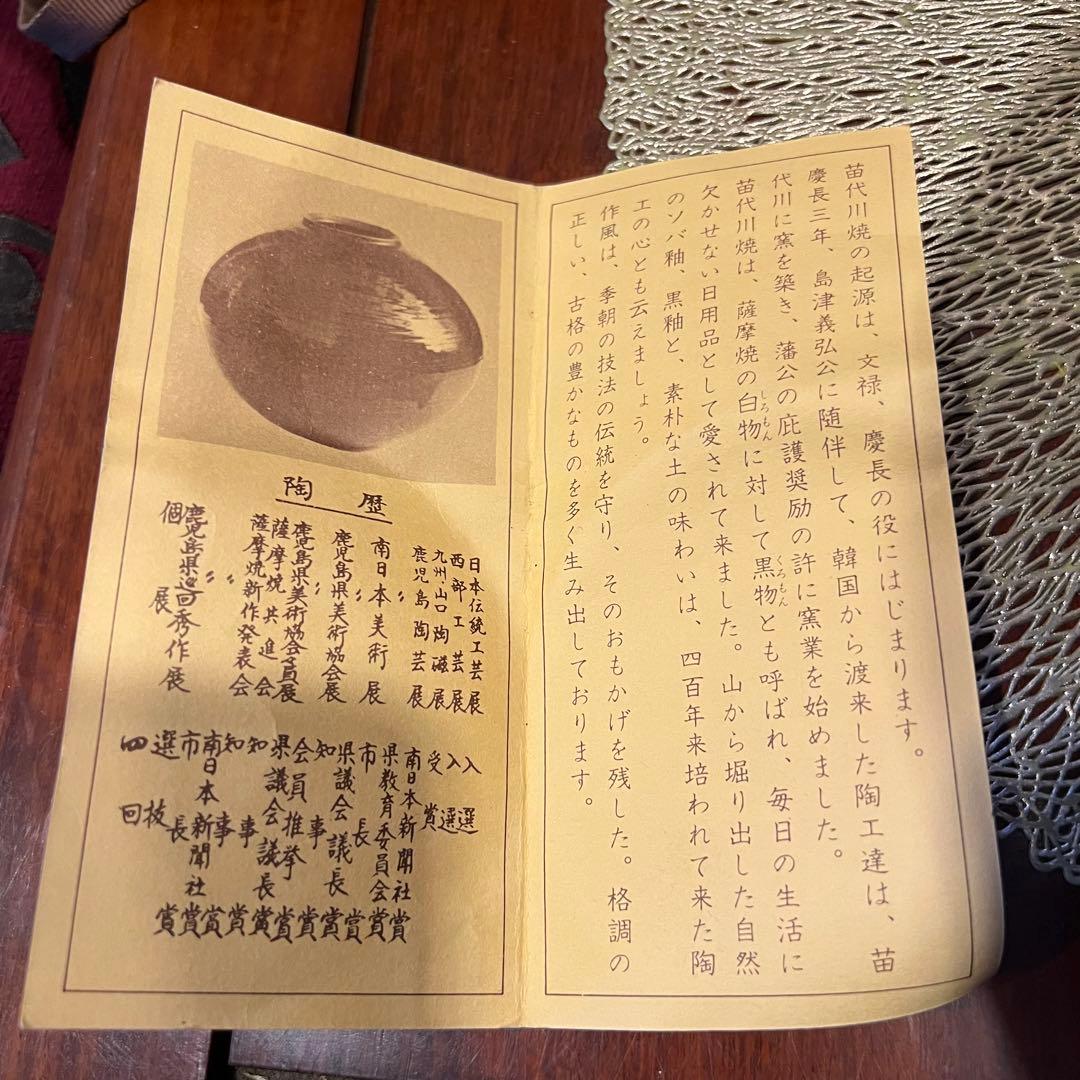 苗代川焼の起源は、文禄、慶長の役にはじまります。
慶長三年、島津義弘公に随伴して、韓国から渡来した陶工達は、苗
代川に窯を築き、藩公の庇護奨励の許に窯業を始めました。
苗代川焼は、薩摩焼の白物しろもんに対して黒物くろもんとも呼ばれ、毎日の生活に
欠かせない日用品として愛されて来ました。山から堀り出した自然
のソバ釉、黒釉と、素朴な土の味わいは、四百年来培われて来た陶
工の心とも云えましょう。
作風は、季朝の技法の伝統を守り、そのおもかげを残した。格調の
正しい、古格の豊かなものを多く生み出しております。
陶歴
日本伝統工芸展 入選
西部工芸展 入選
九州山口陶磁展 受賞
鹿児島陶芸展 南日本新聞社賞
〃 県教育委員会賞
南日本美術展 市長賞
〃 県議会議長賞
鹿児島県美術協会展 知事賞
〃 会員推挙賞
鹿児島県美術協会会員展 県議会議長賞
薩摩焼共進会 知事賞
薩摩焼新作発表会 知事賞
〃 南日本新聞社賞
〃 市長賞
鹿児島県巡回秀作展 選抜
個展 四回